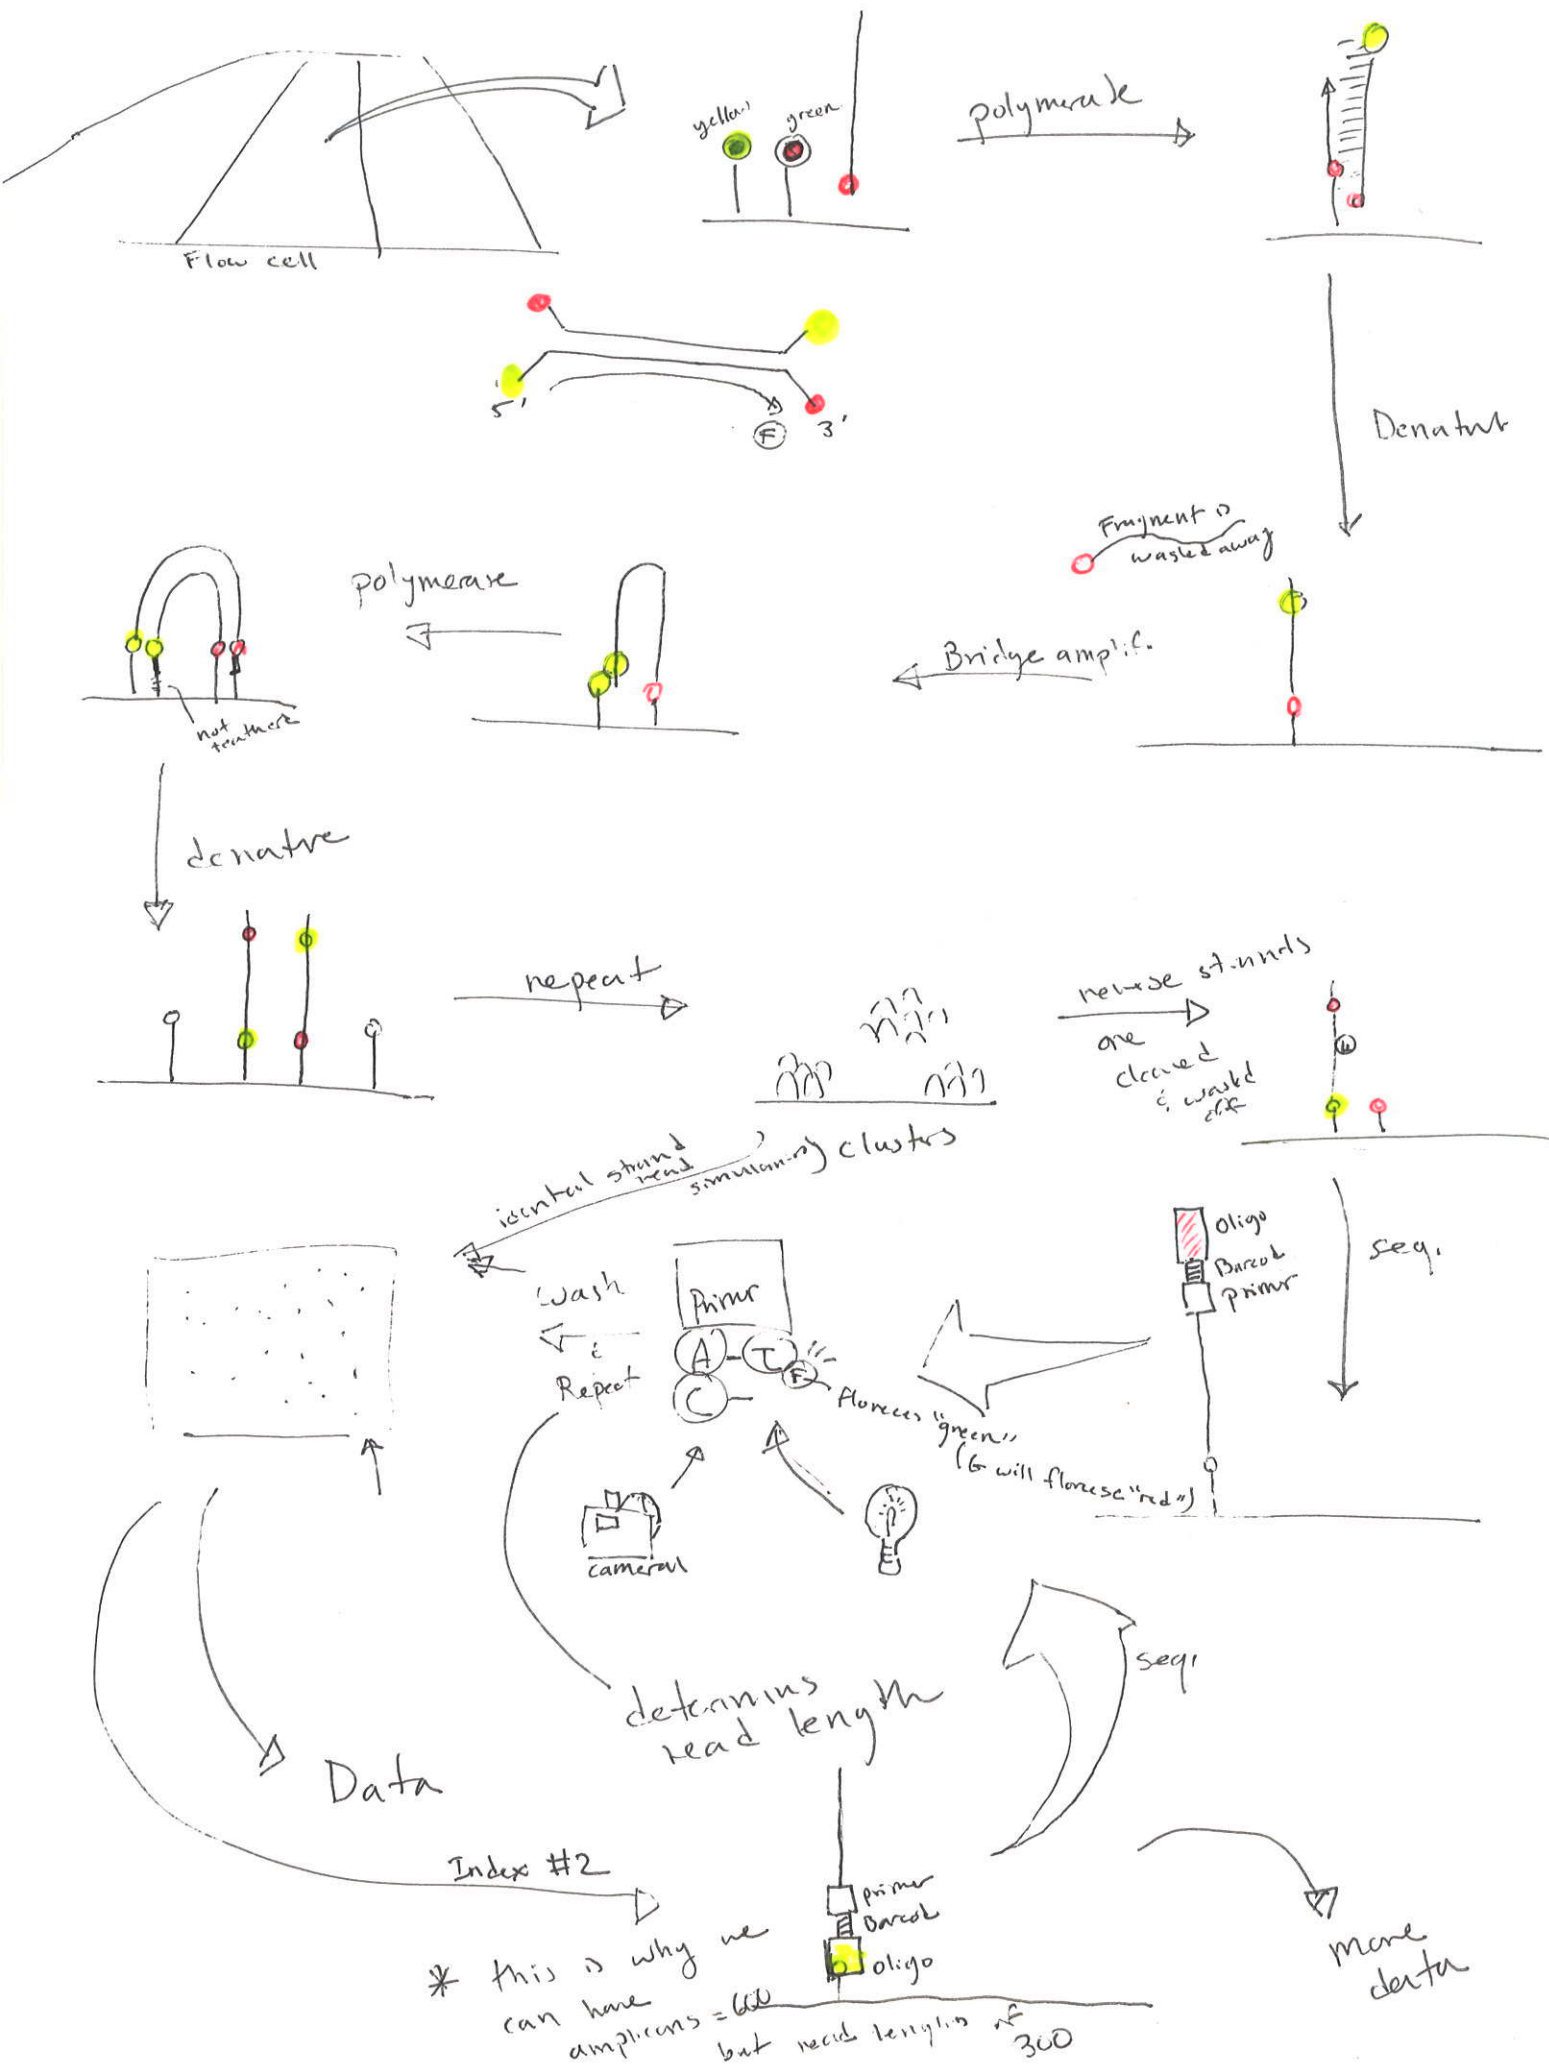 yellow
green
polymerase
Flow cell
5'
F
3'
Denature
Fragment is
washed away
polymerase
Bridge amplif.
not
denatre
repeat
reverse strands
one
cleaved
& washed
off
clusters
strand
read
Oligo
Barcode
primer
seq.
Wash
&
Repeat
Primer
A - T
F
C -
floreces "green"
(G will florese "red")
camera
determins
read length
seq.
Data
Index #2
primer
Barcode
oligo
more
data
* this is why we
can have
amplicons = 600
but read lengths of
300